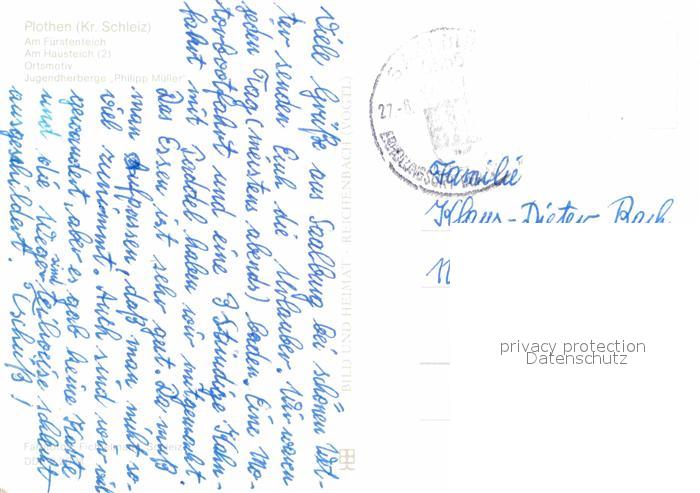 Plothen (Kr. Schleiz)
Am Fürstenteich
Am Hausteich (2)
Ortsmotiv
Jugendherberge „Philipp Müller"
Viele Grüße aus Saalburg bei schönem Wet-
ter senden Euch die Urlauber. Wir waren
jeden Tag (meistens abends) baden. Eine Mo-
torbootfahrt und eine 3 Stündige Kahn-
fahrt mit Paddel haben wir mitgemacht.
Das Essen ist sehr gut. Da muß
man aufpassen, daß man nicht so-
viel zunimmt. Auch sind wir viel
gewandert, aber es gab keine Karte
und die Wege sind teilweise schlecht
ausgeschildert. Tschüß!
BILD UND HEIMAT · REICHENBACH (VOGTL)
27.-8.
Familie
Klaus-Dieter
privacy protection
Datenschutz